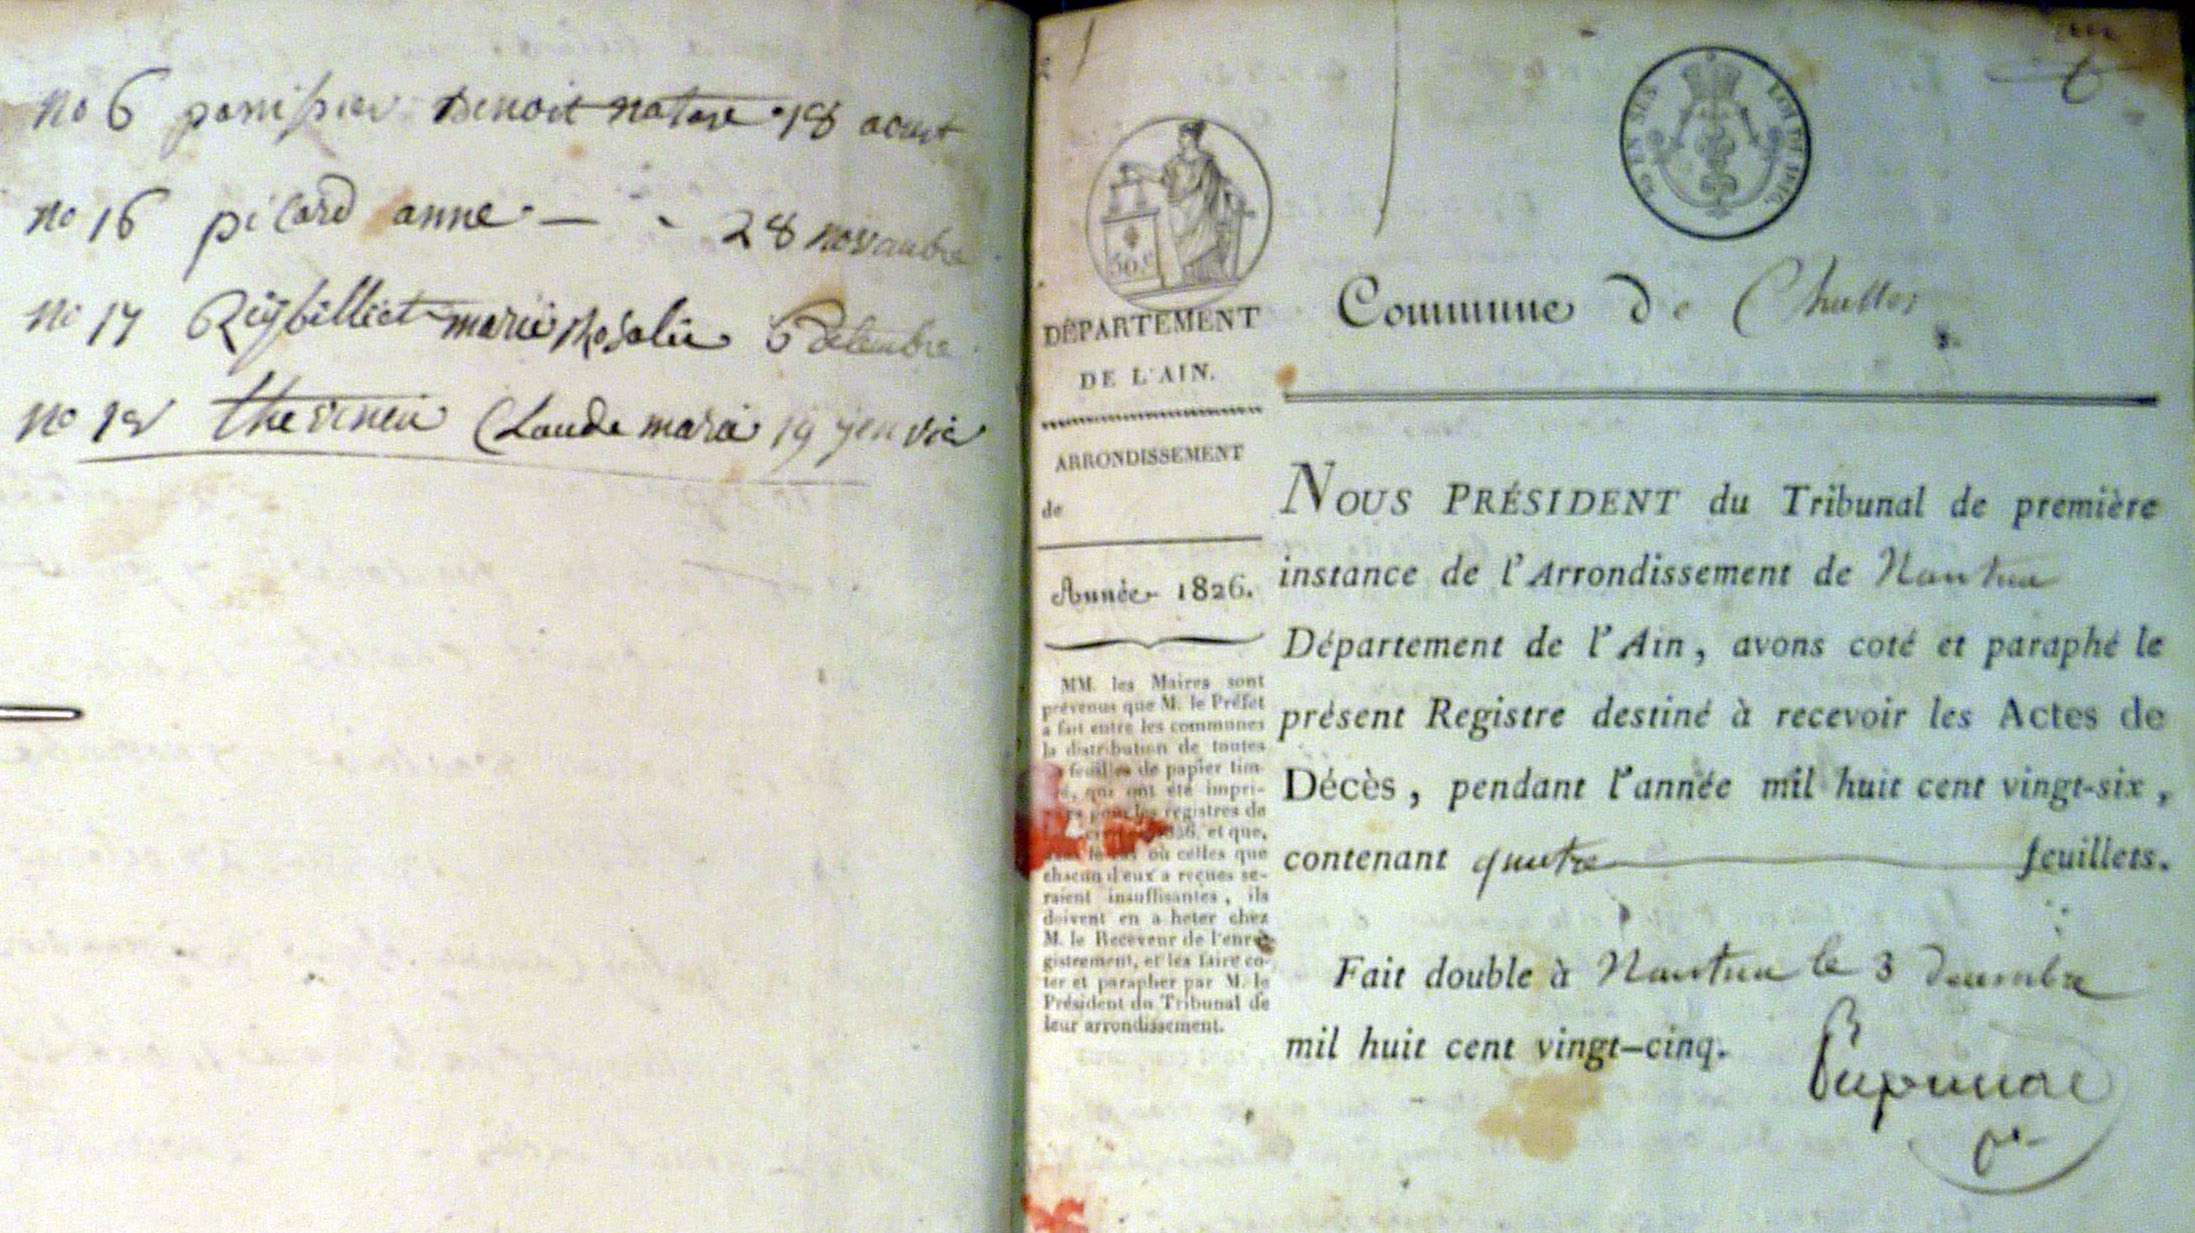 no 6 ponspier Benoit natare 18 aout
no 16 picard anne 28 novanbre
no 17 Reybilliet marie Rosalie 6 Désenbre
no 12 thevenen Claude maria 19 jenvié
50.c
DÉPARTEMENT
DE L'AIN.
ARRONDISSEMENT
de
Année 1826.
MM. les Maires sont
prévenus que M. le Préfet
a fait entre les communes
la distribution de toutes
feuilles de papier tim-
qui ont été impri-
registres de
et que,
où celles que
chacun d'eux a reçues se-
raient insuffisantes, ils
doivent en a heter chez
M. le Receveur de l'enre-
gistrement, et les faire co-
ter et parapher par M. le
Président du Tribunal de
leur arrondissement.
Commune de Challes
NOUS PRÉSIDENT du Tribunal de première
instance de l'Arrondissement de Nantua
Département de l'Ain, avons coté et paraphé le
présent Registre destiné à recevoir les Actes de
Décès, pendant l'année mil huit cent vingt-six,
contenant quatre feuillets.
Fait double à Nantua le 3 decembre
mil huit cent vingt-cinq.